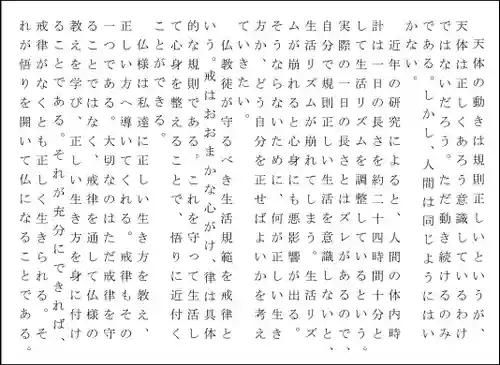 天体の動きは規則正しいというが、
天体は正しくあろう意識しているわけ
ではないだろう。ただ動き続けるのみ
である。しかし、人間は同じようにはい
かない。
近年の研究によると、人間の体内時
計は一日の長さを約二十四時間十分と
して生活リズムを調整しているという。
実際の一日の長さとはズレがあるので、
自分で規則正しい生活を意識しないと、
生活リズムが崩れてしまう。生活リズ
ムが崩れると心身にも悪影響が出る。
そうならないために、何が正しい生き
方か、どう自分を正せばよいかを考え
ていきたい。
仏教徒が守るべき生活規範を戒律と
いう。戒はおおまかな心がけ、律は具体
的な規則である。これを守って生活し
て心身を整えることで、悟りに近付く
ことができる。
仏様は私達に正しい生き方を教え、
正しい方へ導いてくれる。戒律もその
一つである。大切なのはただ戒律を守
ることではなく、戒律を通して仏様の
教えを学び、正しい生き方を身に付け
ることである。それが充分にできれば、
戒律がなくとも正しく生きられる。そ
れが悟りを開いて仏になることである。